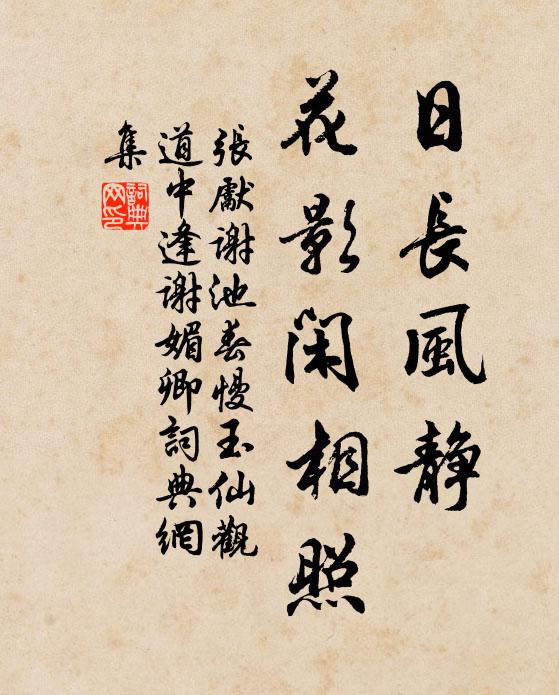 日長風静
花影閑相照
張獻謝池春慢玉仙觀
道中逢謝媚卿詞典網
集
詞典網印